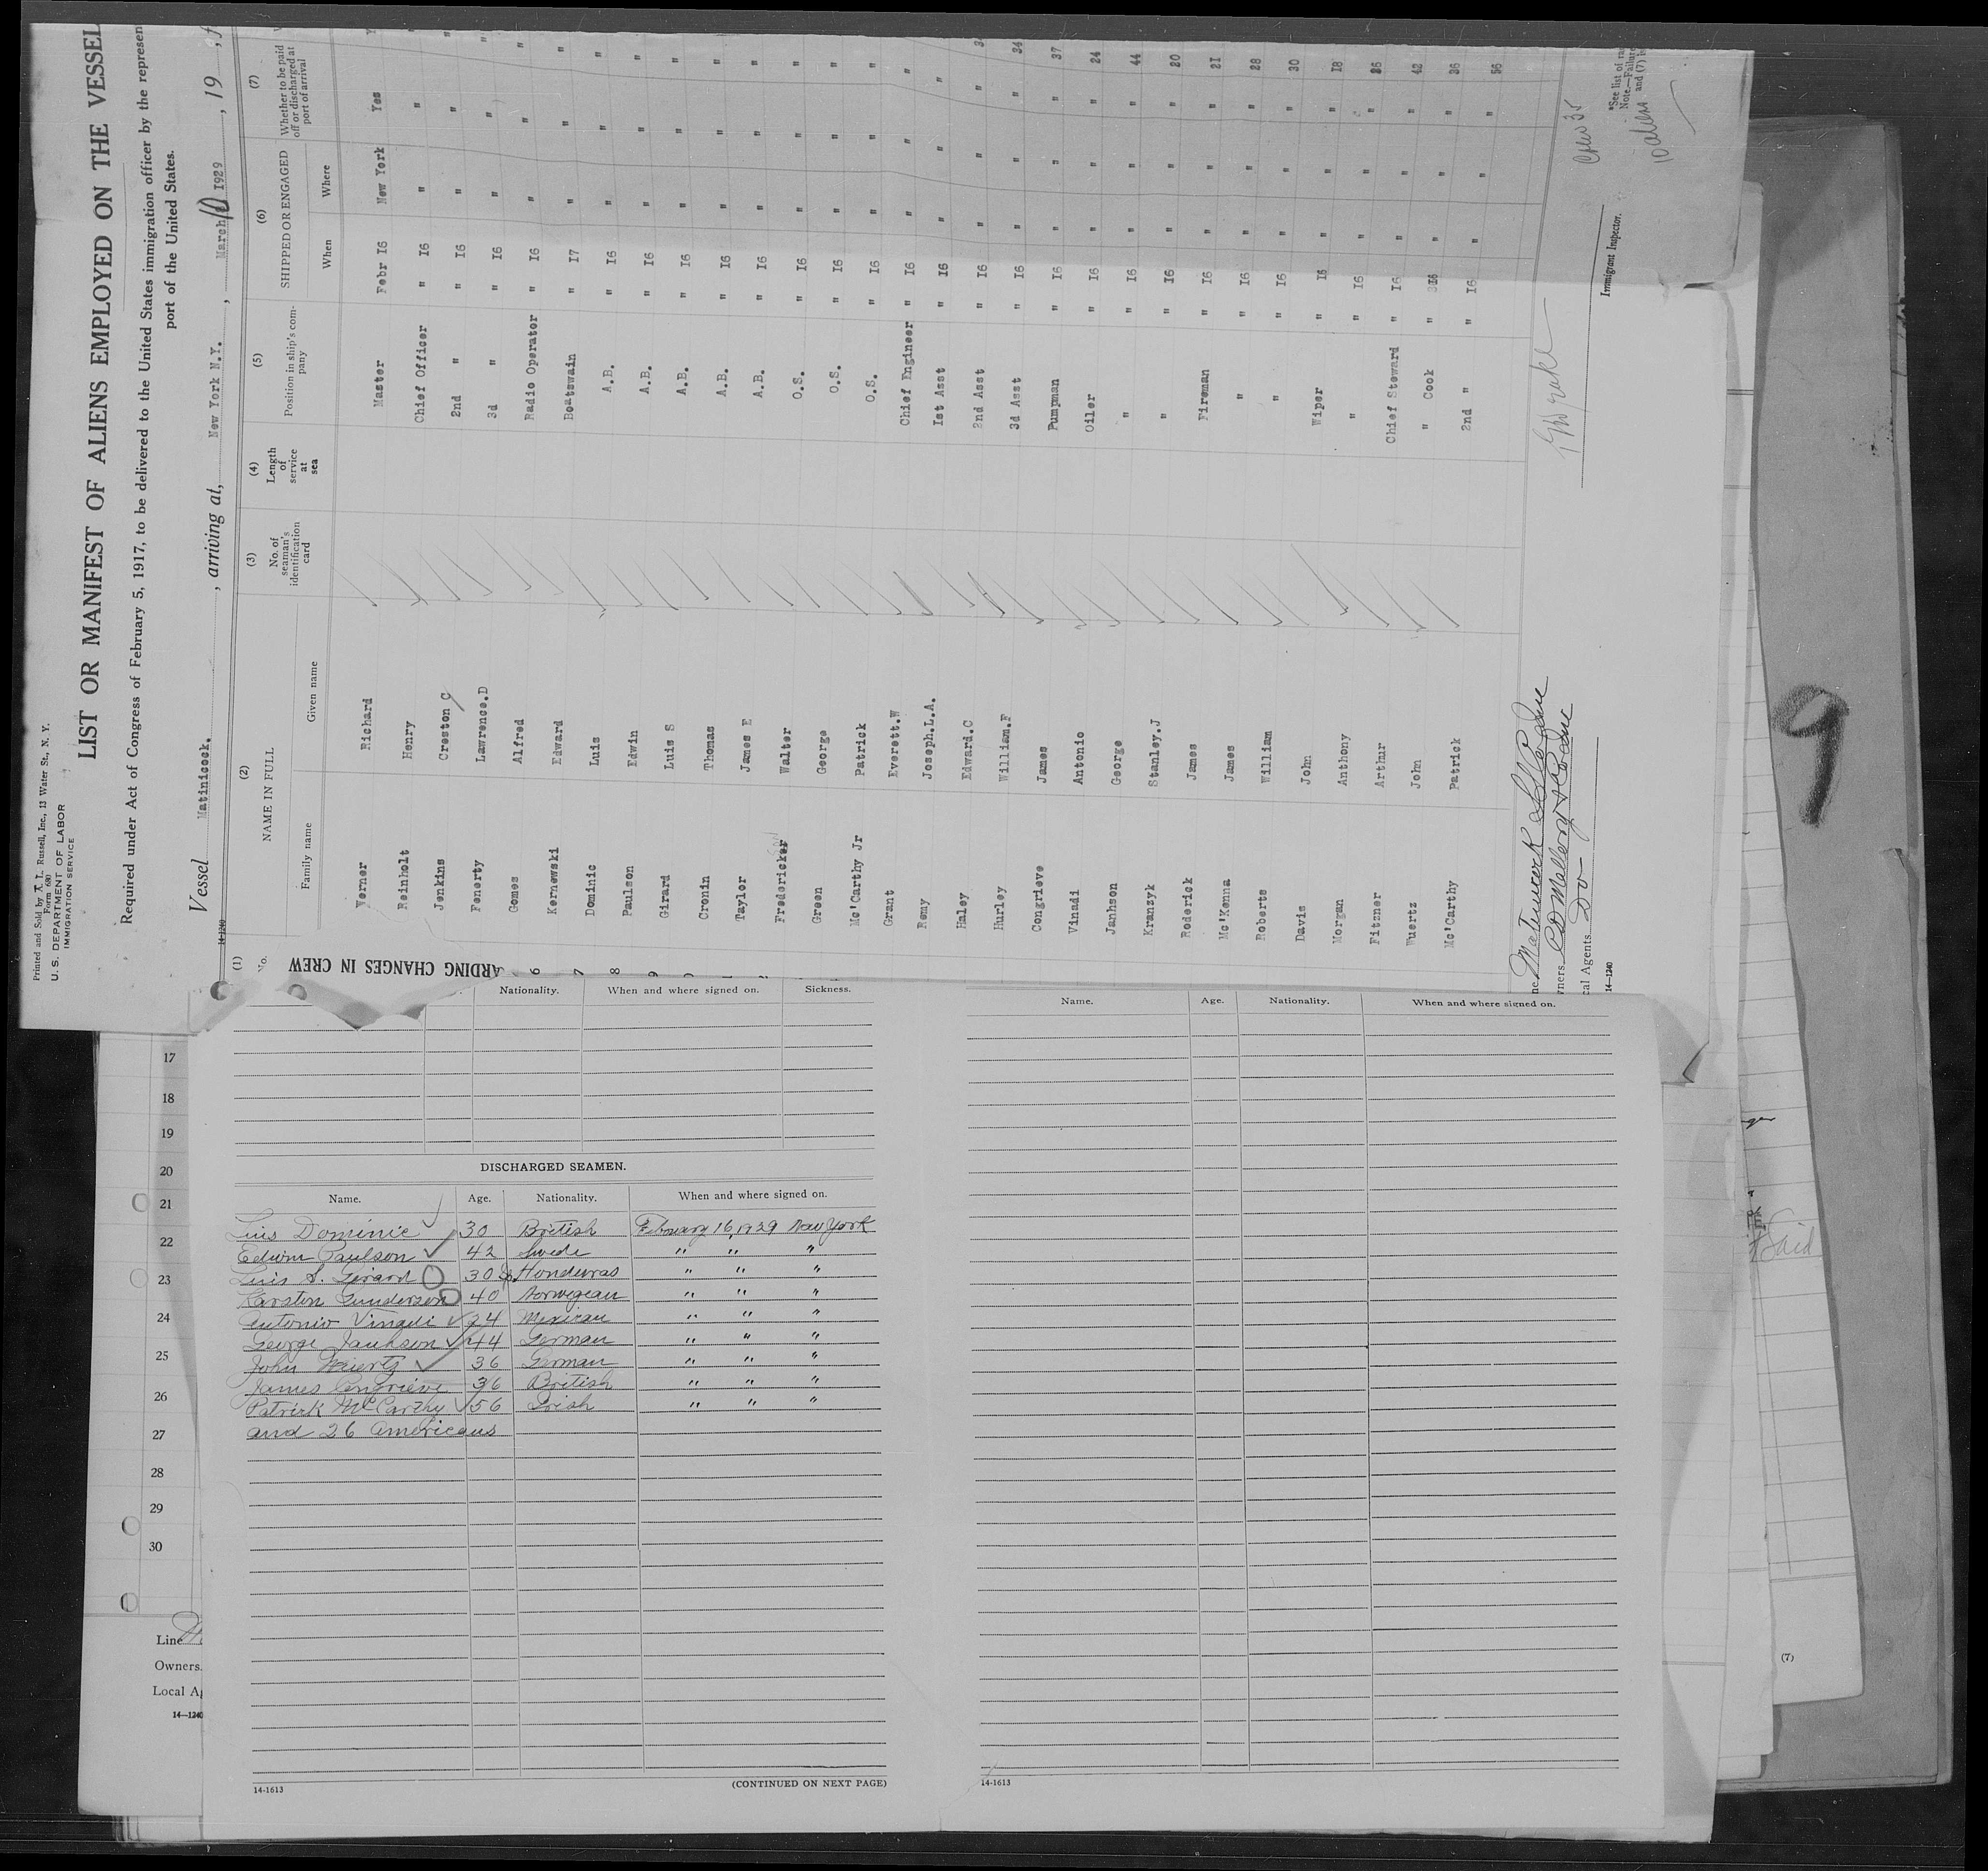 Printed and Sold by A. L. Russell, Inc., 13 Water St., N. Y.
Form 680
U. S. DEPARTMENT OF LABOR
IMMIGRATION SERVICE
LIST OR MANIFEST OF ALIENS EMPLOYED ON THE VESSEL
Required under Act of Congress of February 5, 1917, to be delivered to the United States immigration officer by the represen
port of the United States.
Vessel Matinicock. , arriving at, New York N.Y. , March 10 1929 , 19 , f
14-1240
(1) (2) (3) (4) (5) (6) (7)
No. NAME IN FULL No. of seaman's identification card Length of service at sea Position in ship's company SHIPPED OR ENGAGED Whether to be paid off or discharged at port of arrival
Family name Given name When Where
Verner Richard Master Febr 16 New York Yes
Reinholt Henry Chief Officer " 16 " "
Jenkins Creston C 2nd " " 16 " "
Fenerty Lawrence.D 3d " " 16 " "
Gomes Alfred Radio Operator " 16 " "
Kernewski Edward Boatswain " 17 " "
Dominic Luis A.B. " 16 " "
Paulson Edwin A.B. " 16 " "
Girard Luis S A.B. " 16 " "
Cronin Thomas A.B. " 16 " "
Taylor James E A.B. " 16 " "
Fredericker Walter O.S. " 16 " "
Green George O.S. " 16 " "
Mc'Carthy Jr Patrick O.S. " 16 " "
Grant Everett.W Chief Engineer " 16 " "
Remy Joseph.L.A. 1st Asst " 16 " "
Haley Edward.C 2nd Asst " 16 " "
Hurley William.F 3d Asst " 16 " " 34
Congrieve James Pumpman " 16 " " 37
Vinadi Antonio Oiler " 16 " " 24
Janhson George " " 16 " " 44
Kranzyk Stanley.J " " 16 " " 20
Roderick James Fireman " 16 " " 21
Mc'Kenna James " " 16 " " 28
Roberts William " " 16 " " 30
Davis John Wiper " 16 " " 18
Morgan Anthony " " 16 " "
Fitzner Arthur Chief Steward " 16 " " 42
Wuertz John " Cook " 16 " " 36
Mc'Carthy Patrick 2nd " " 16 " " 56
Crew 35
10 aliens
*See list of ra
Note.—Failure
and (7)
Immigrant Inspector.
ne Matinicock
wners C D Mallory & Co Inc
cal Agents Do
14-1240
ARDING CHANGES IN CREW
6
7
8
9
Nationality. When and where signed on. Sickness.
Name. Age. Nationality. When and where signed on.
DISCHARGED SEAMEN.
Name. Age. Nationality. When and where signed on.
Luis Dominic 30 British February 16, 1929 New York
Edwin Paulson 42 Swede " " "
Luis S. Girard 30 Honduras " " "
Karsten Gunderson 40 Norwegian " " "
Antonio Vinadi 24 Mexican " " "
George Janhson 44 German " " "
John Wuertz 36 German " " "
James Congrieve 36 British " " "
Patrick McCarthy 56 Irish " " "
and 26 Americans
14-1613
(CONTINUED ON NEXT PAGE)
14-1613
17
18
19
20
21
22
23
24
25
26
27
28
29
30
Line
Owners
Local A
14-1240
9
Said
(7)